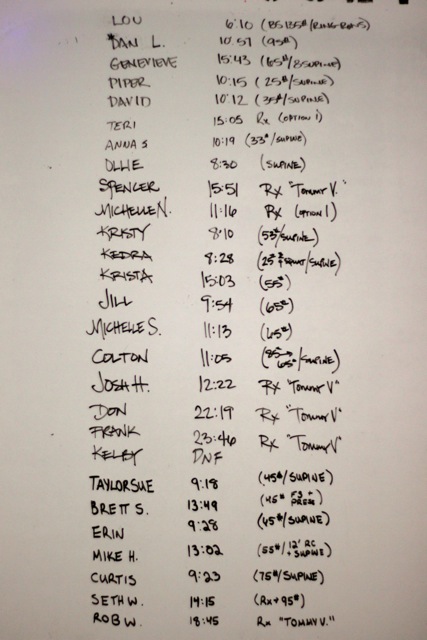 LOU 6:10 (85/RING ROWS)
*DAN L. 10:57 (95#)
GENEVIEVE 15:43 (65#/SUPINE)
PIPER 10:15 (25#/SUPINE)
DAVID 10:12 (35#/SUPINE)
TERI 15:05 Rx (OPTION 1)
ANNA S 10:19 (33#/SUPINE)
OLLIE 8:30 (SUPINE)
SPENCER 15:51 Rx "TOMMY V."
MICHELLE N. 11:16 Rx (OPTION 1)
KRISTY 8:10 (53#/SUPINE)
KEDRA 8:28 (25# FRONT/SUPINE)
KRISTA 15:03 (55#)
JILL 9:54 (65#)
MICHELLE S. 11:13 (65#)
COLTON 11:05 (85→65#/SUPINE)
JOSH H. 12:22 Rx "TOMMY V"
DON 22:19 Rx "TOMMY V"
FRANK 23:46 Rx "TOMMY V"
KELBY DNF
TAYLORSUE 9:18 (45#/SUPINE)
BRETT S. 13:49 (45# FS + PRESS)
ERIN 9:28 (45#/SUPINE)
MIKE H. 13:02 (55#/12' RC + SUPINE)
CURTIS 9:23 (75#/SUPINE)
SETH W. 14:15 (Rx+95#)
ROB W. 18:45 Rx "TOMMY V."